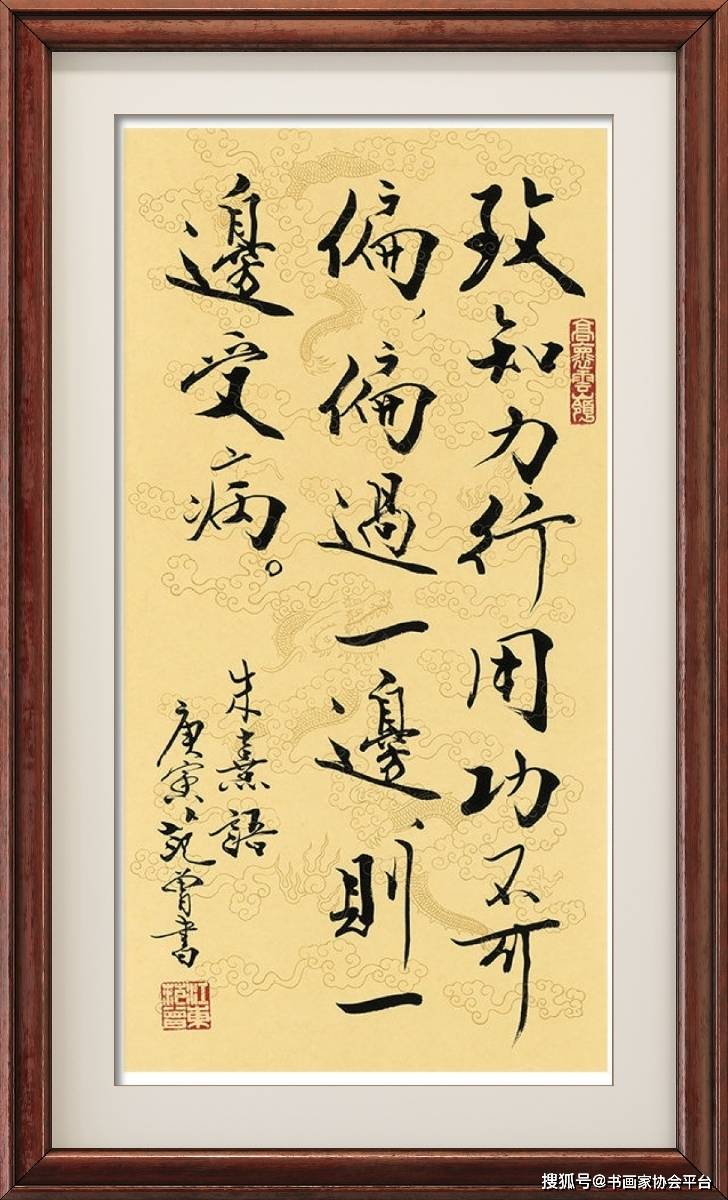 致知力行用功不可
偏、偏過一邊、則一
邊受病。
朱熹語
庚寅范曾書
江東范曾
搜狐号@书画家协会平台